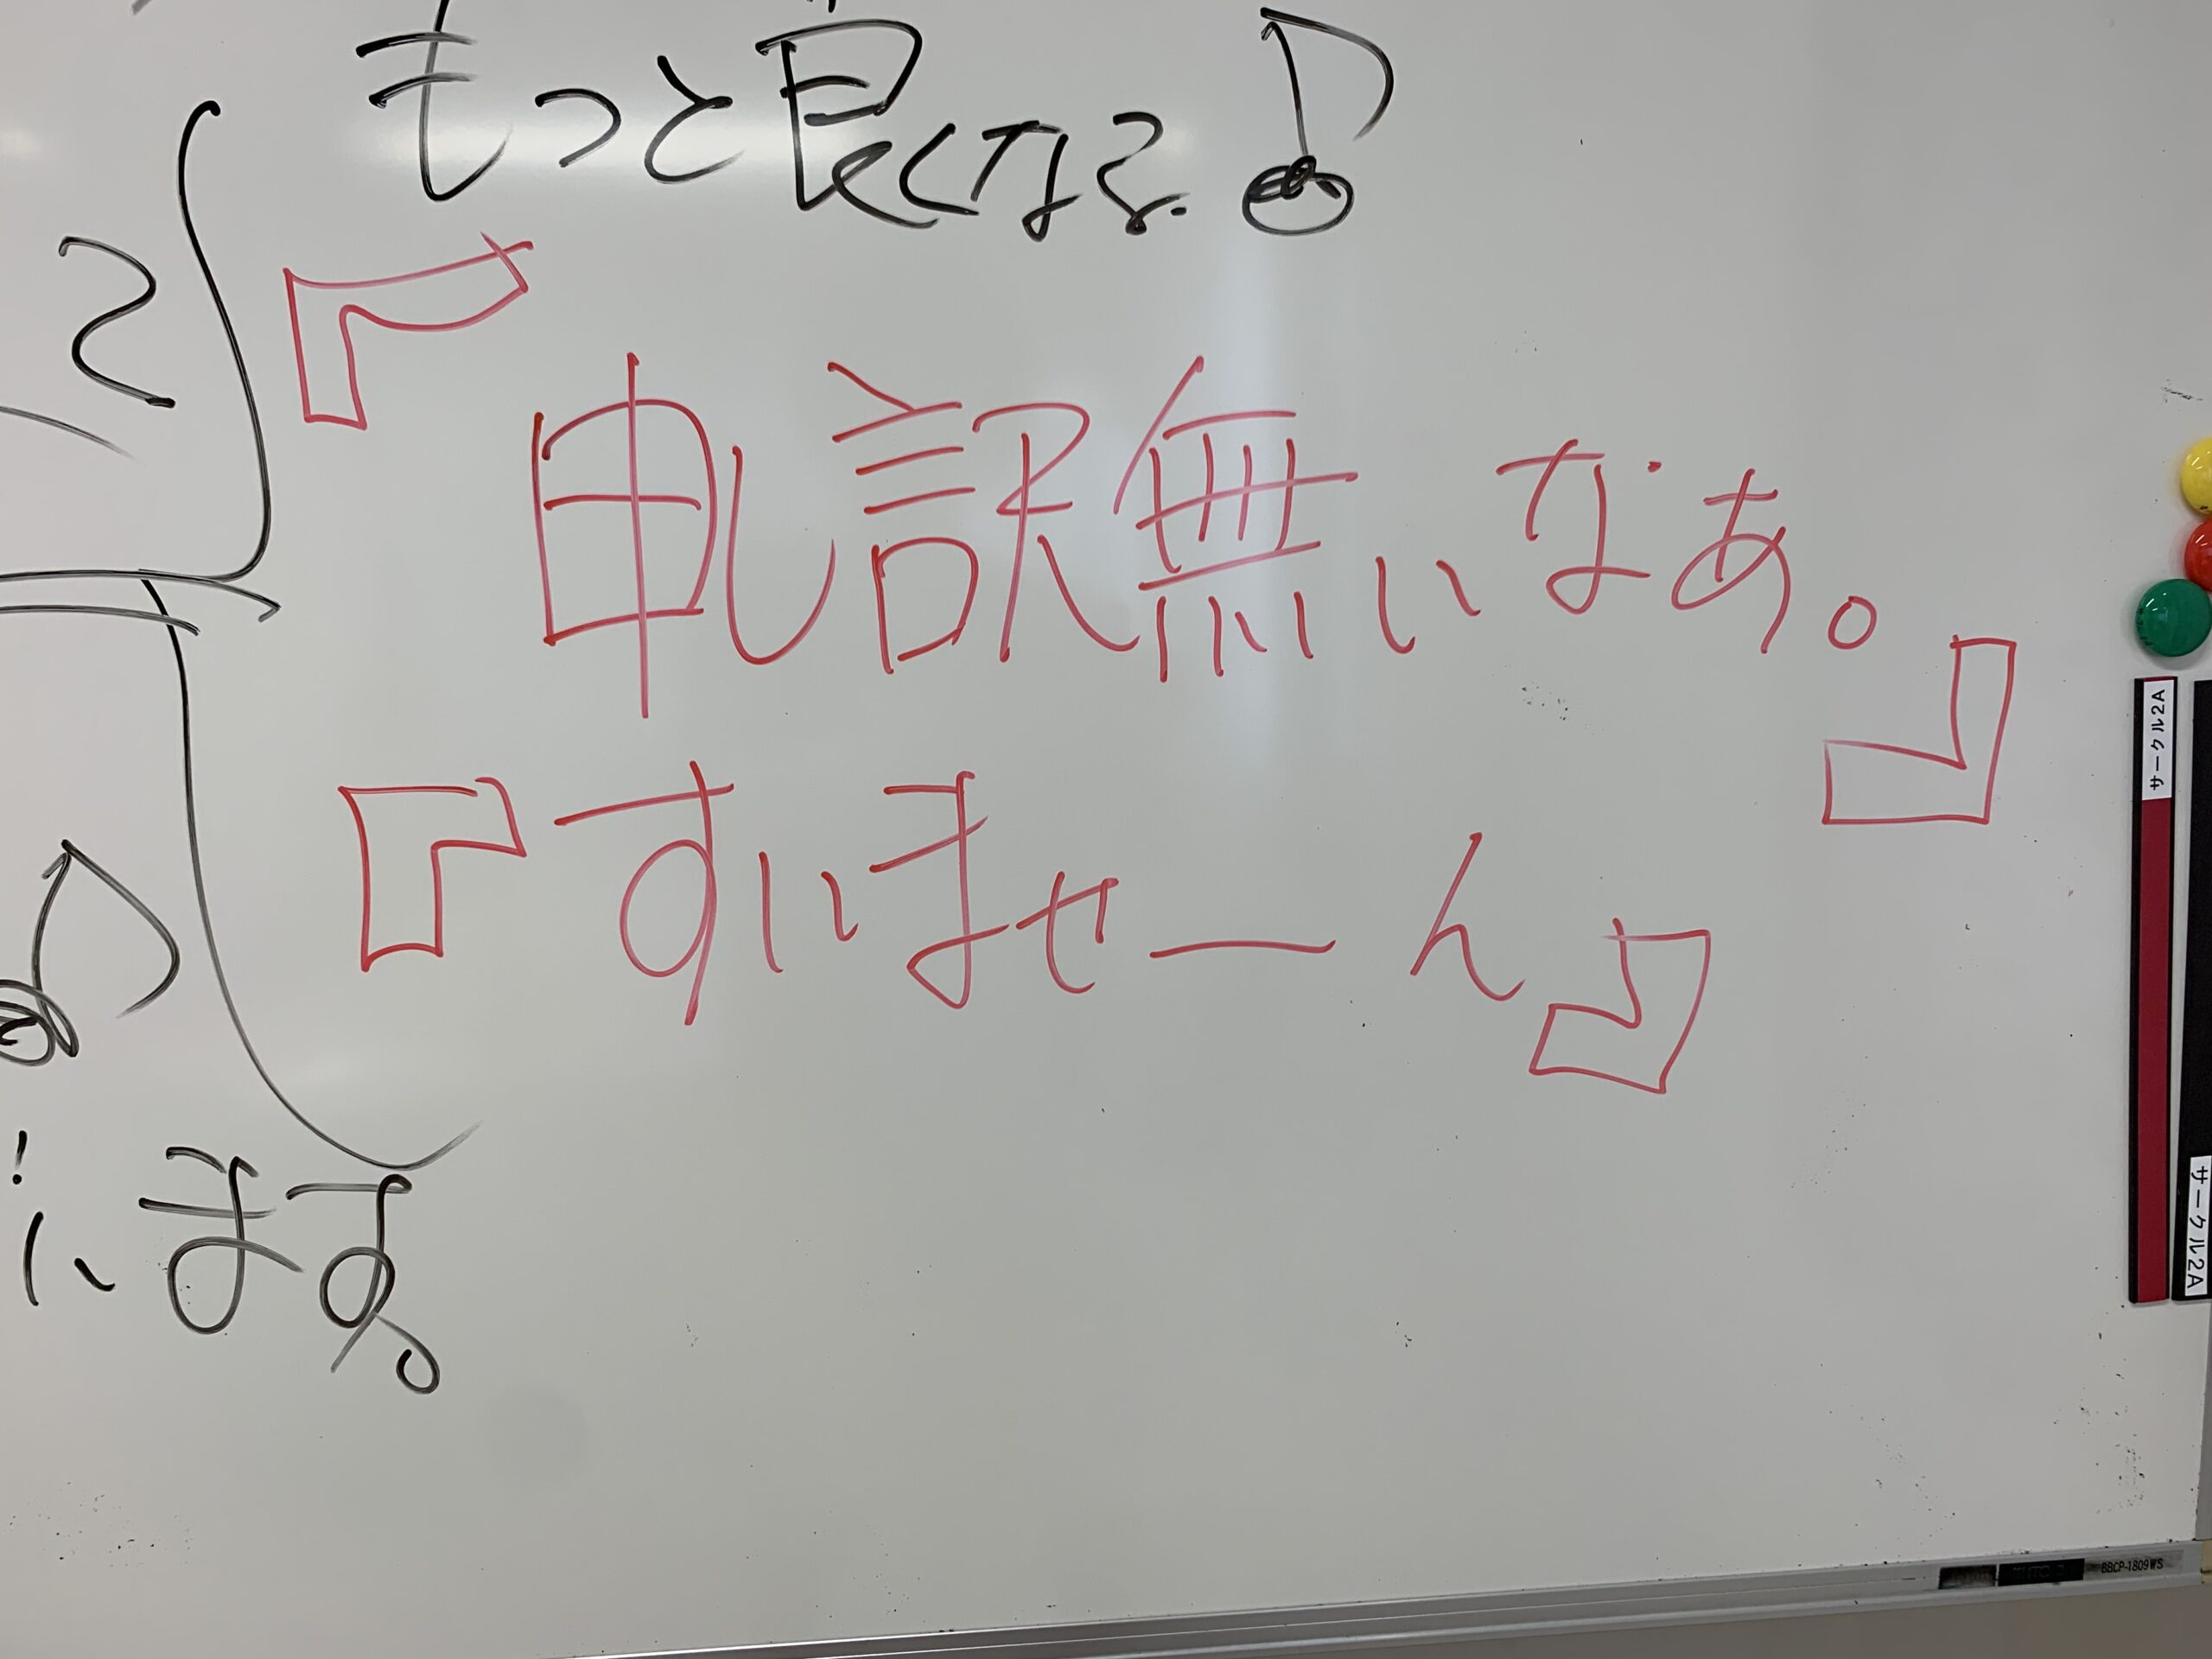 もっと良くなる♪
『申し訳無いなぁ。』
『すいませーん』
います。
サークル2A
サークル2A
BBCP-1809WS